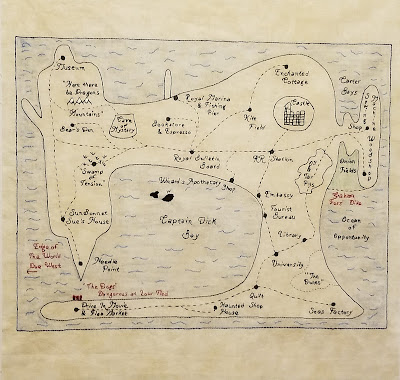 Museum
"Here there
be Dragons
Mountains"
Bear's Den
Cave
of
Mystery
Royal Marina
& Fishing
Pier
Bookstore
& Espresso
Enchanted
Cottage
Kite
Field
Castle
Carter
Bays
Shop
Woods
Onion
Fields
Ocean
of
Opportunity
Swamp
of
Tension
Royal Bulletin
Board
RR Station
Wizard's Apothecary
Shop
Embassy
Tourist
Bureau
Library
University
"The
Ruins"
Sun Bonnet
Sue's House
Captain Dick
Bay
Edge of
The World
Due West
Needle
Point
"The Dogs"
Dangerous at Low Tide
Drive In Movie
& Flea Market
Haunted Shop
House
Quilt
Seas Factory